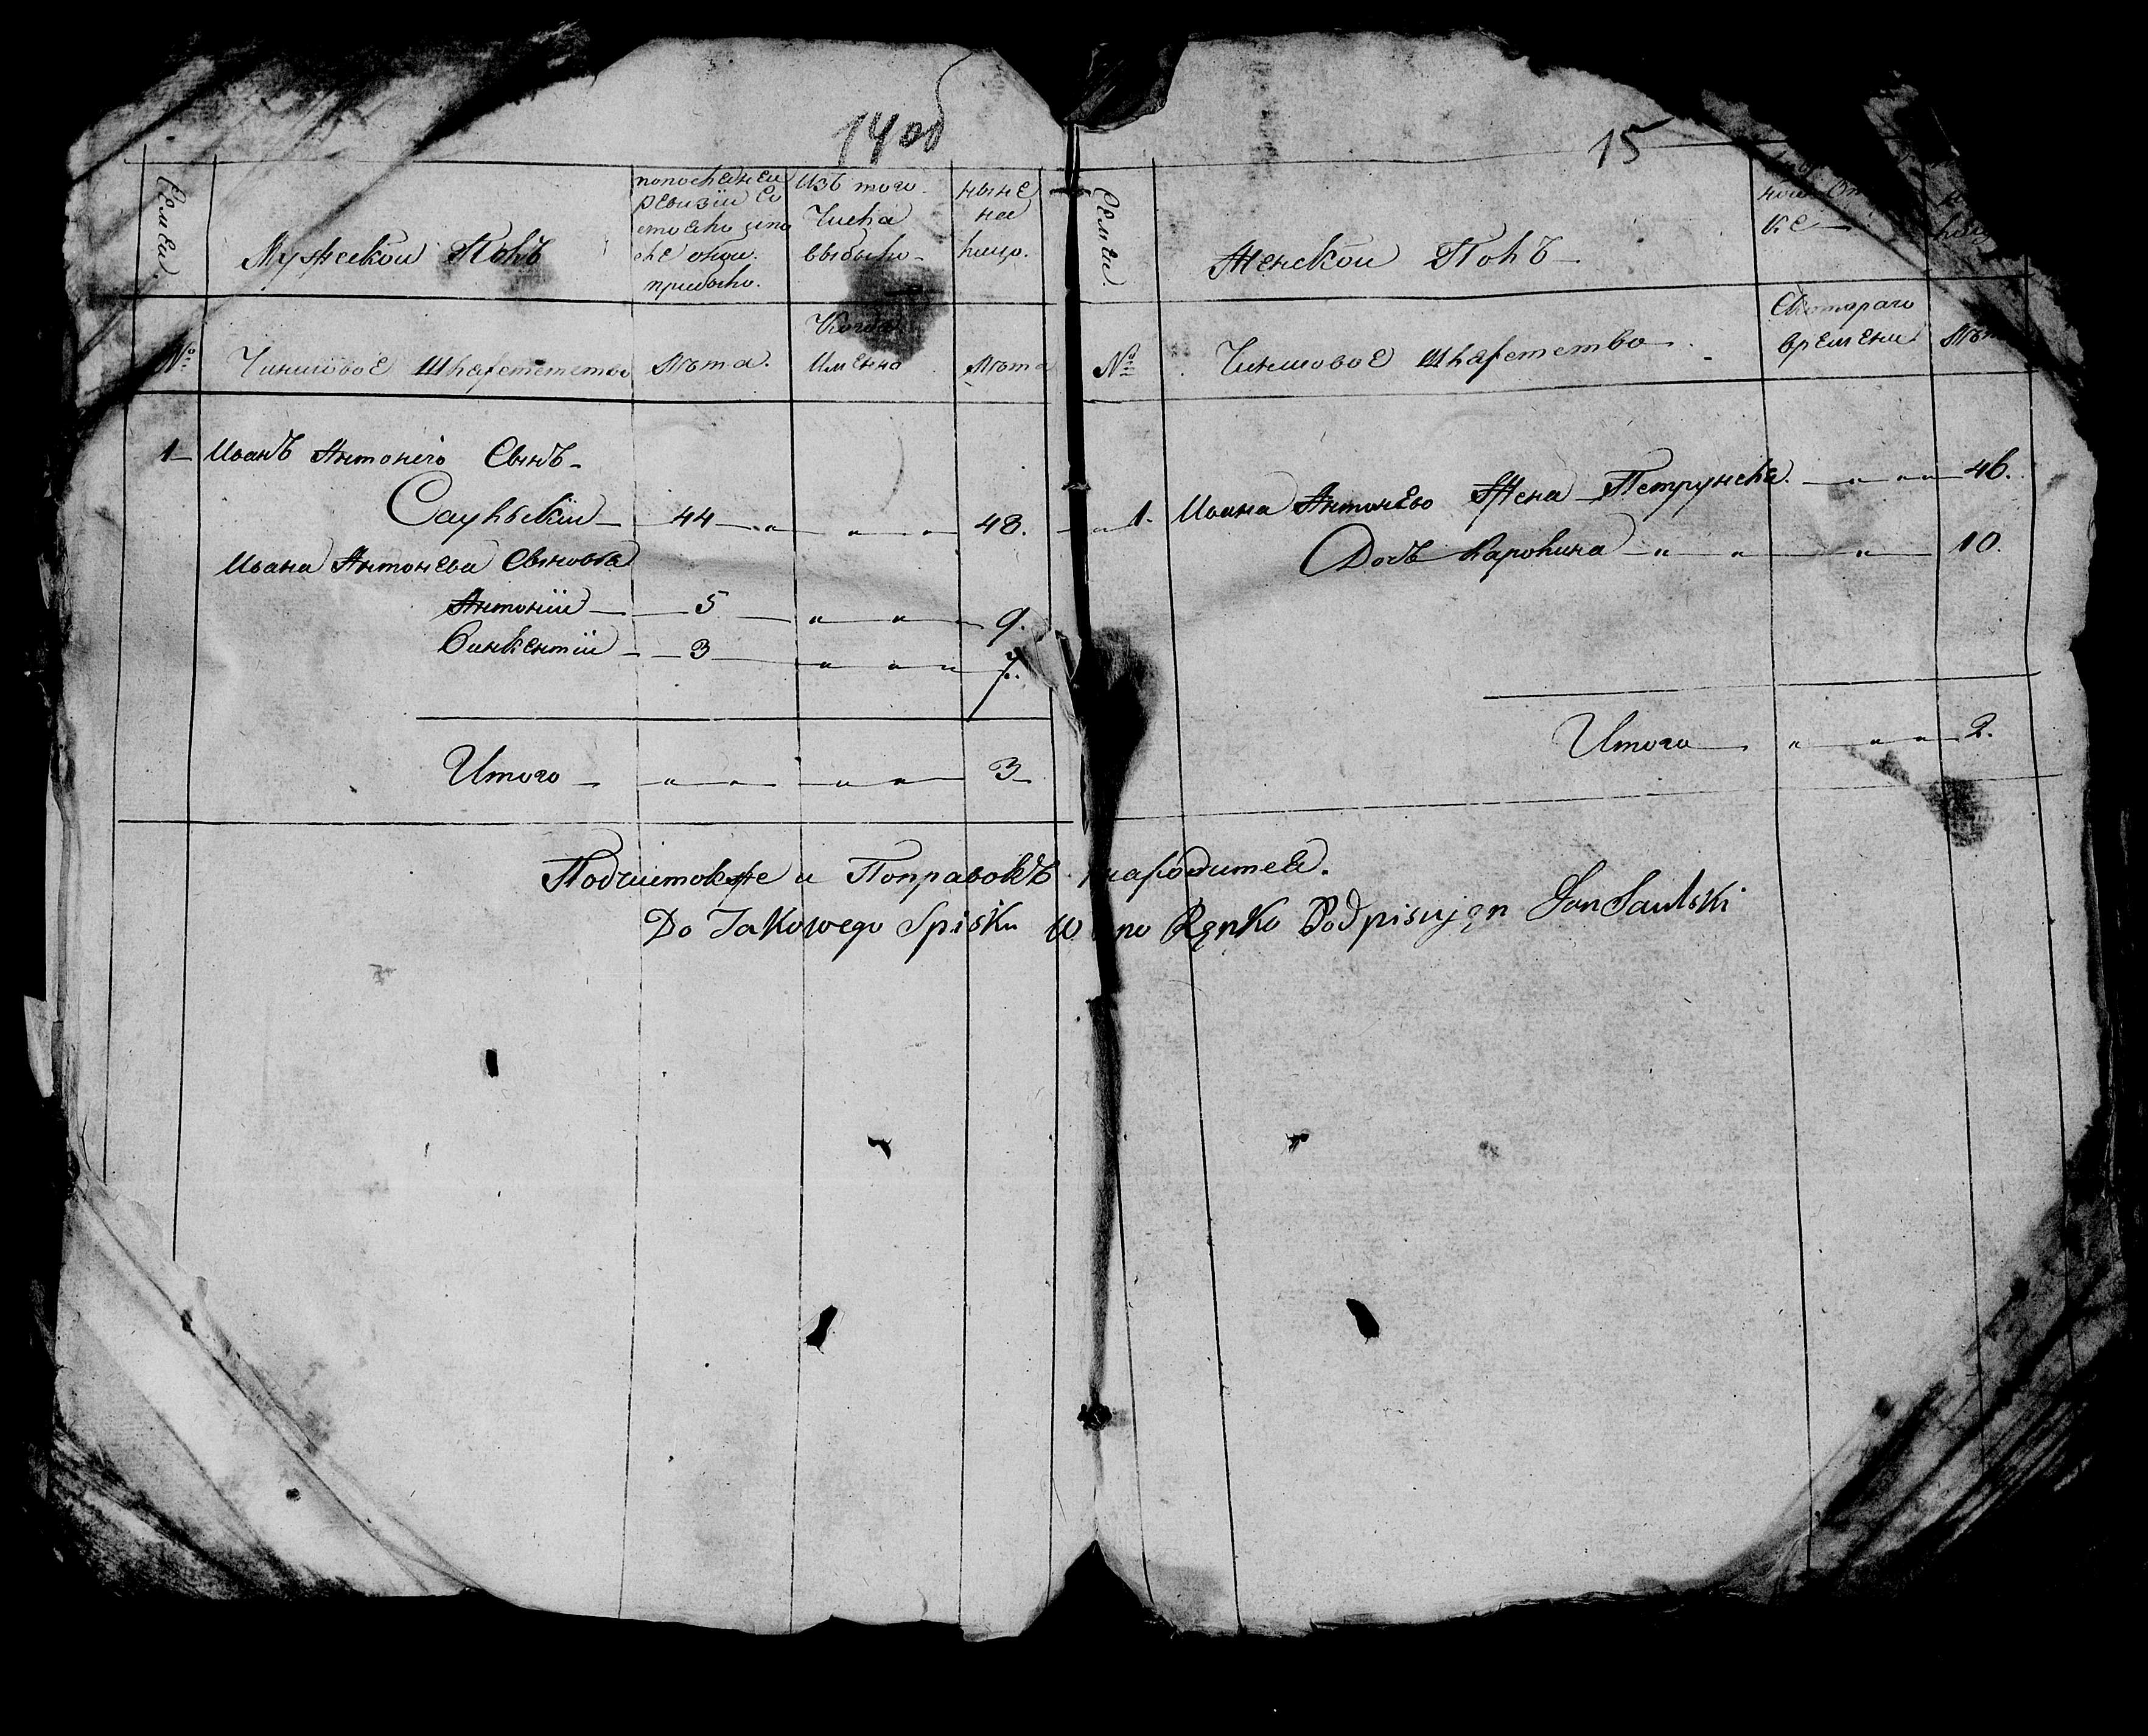 14об
Семьи
Мужескои Полъ
попоследнеи
ревизіи со
стояло ипо
сле онои
прибыло.
Изъ того
Числа
выбыло
ныне
на
лицо.
№
Чиншовое Шляхетство
Лѣта.
Когда
Имянно
Лѣта
1 Иванъ Антоніего Сынъ
Саульскіи 44 „ „ „ 48.
Ивана Антонева Сыновья
Антоніи 5 „ „ 9.
Викентіи 3 „ „ „ 7.
Итого „ „ „ „ 3
15
Семьи
Женскои Полъ
№
Чиншовое Шляхетство
Скотораго
времени
Лѣта
1. Ивана Антонево Жена Петрунеля „ „ „ 46.
Дочь Каролина „ „ „ 10.
Итого „ „ „ 2.
Подчистокже и Поправокъ находится.
Do Takowego Spisku Renko Podpisujen Jan Saulski